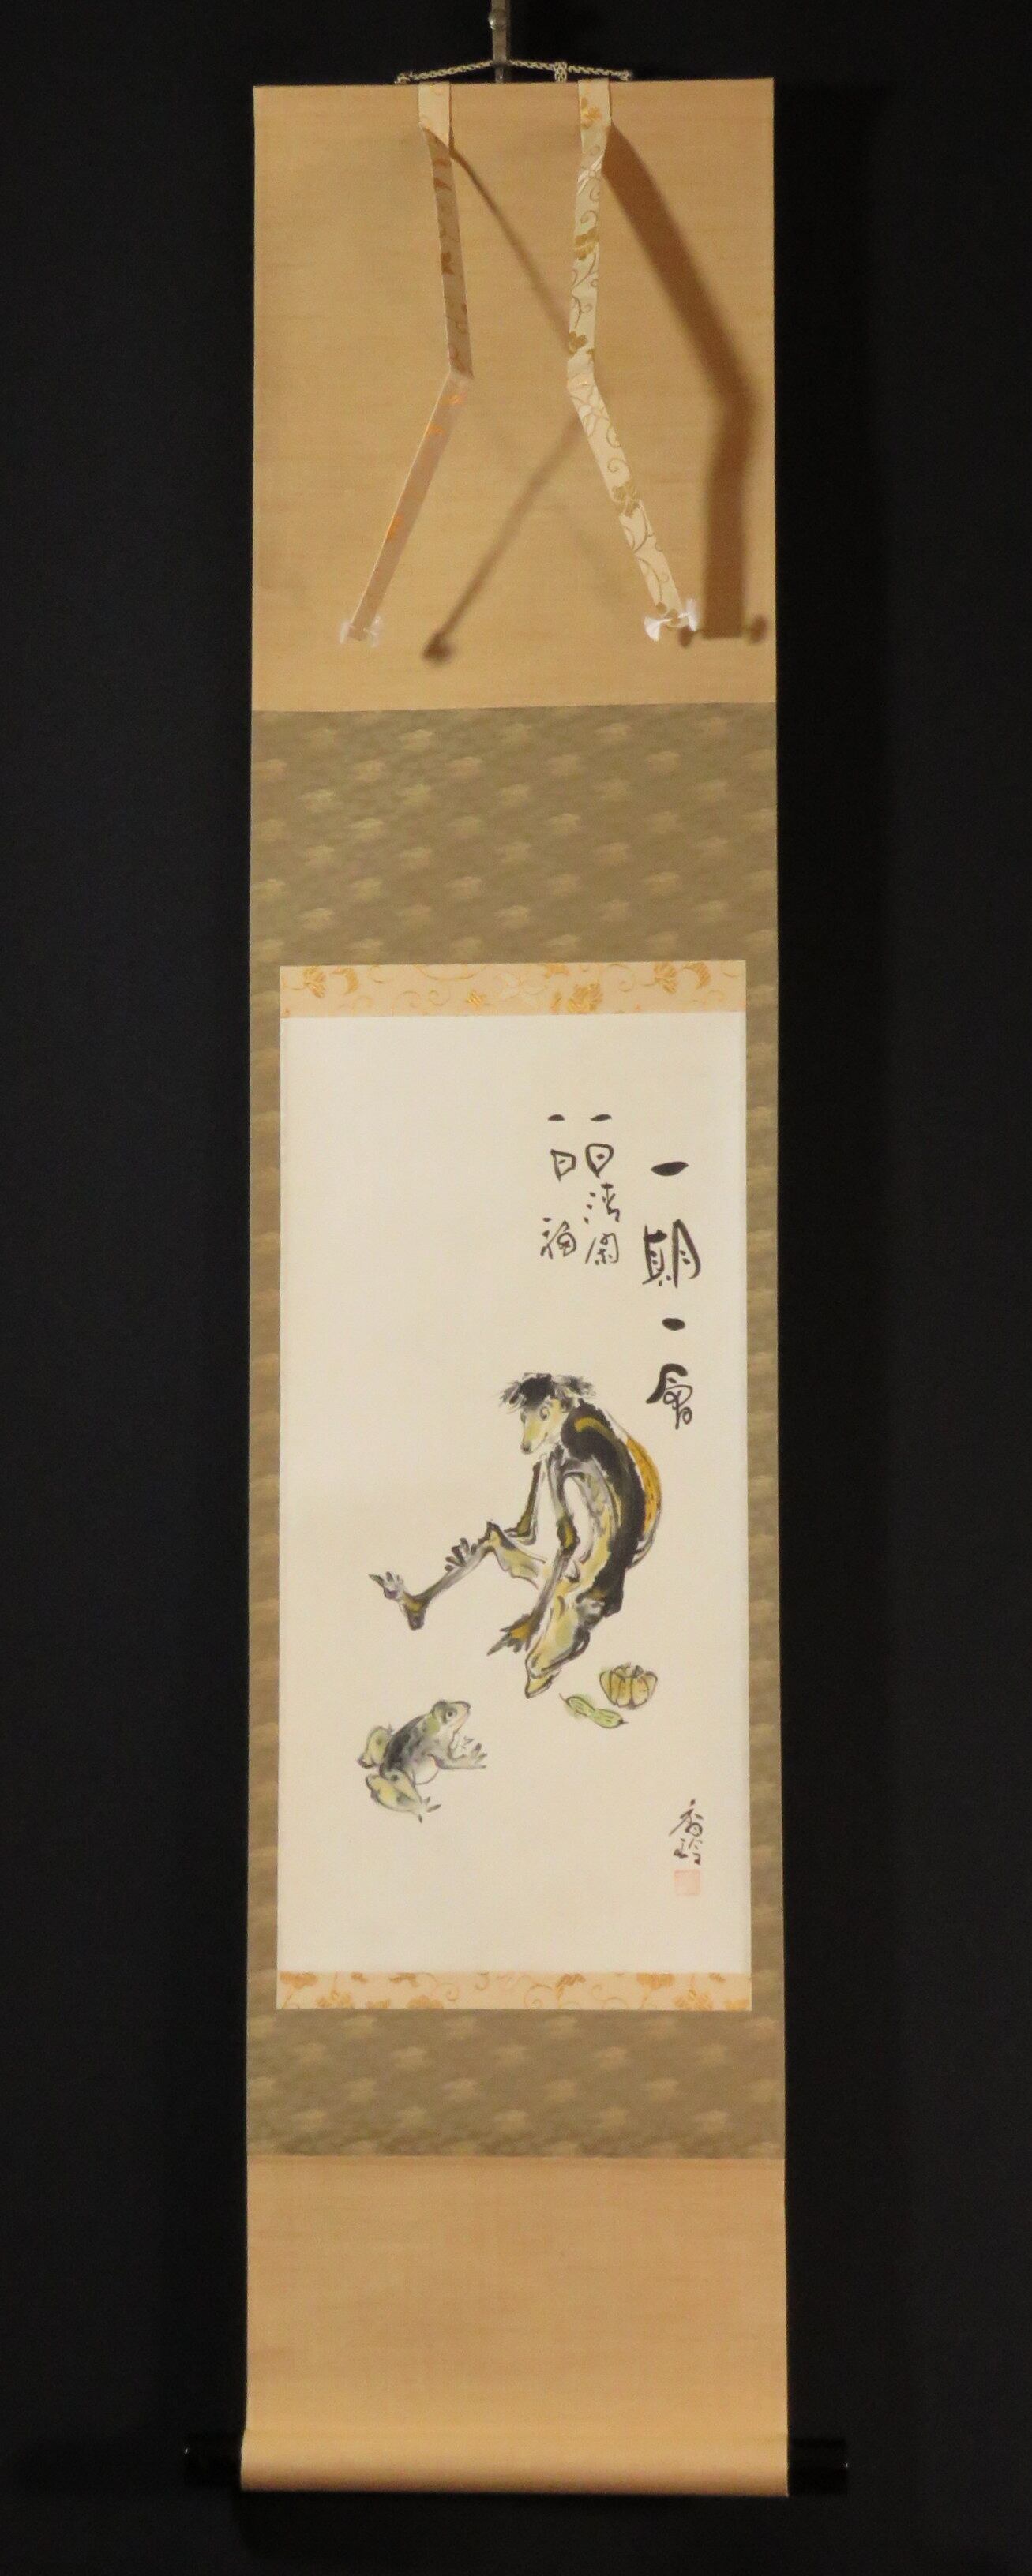 一期一會
一日清閑
一日福
香玲